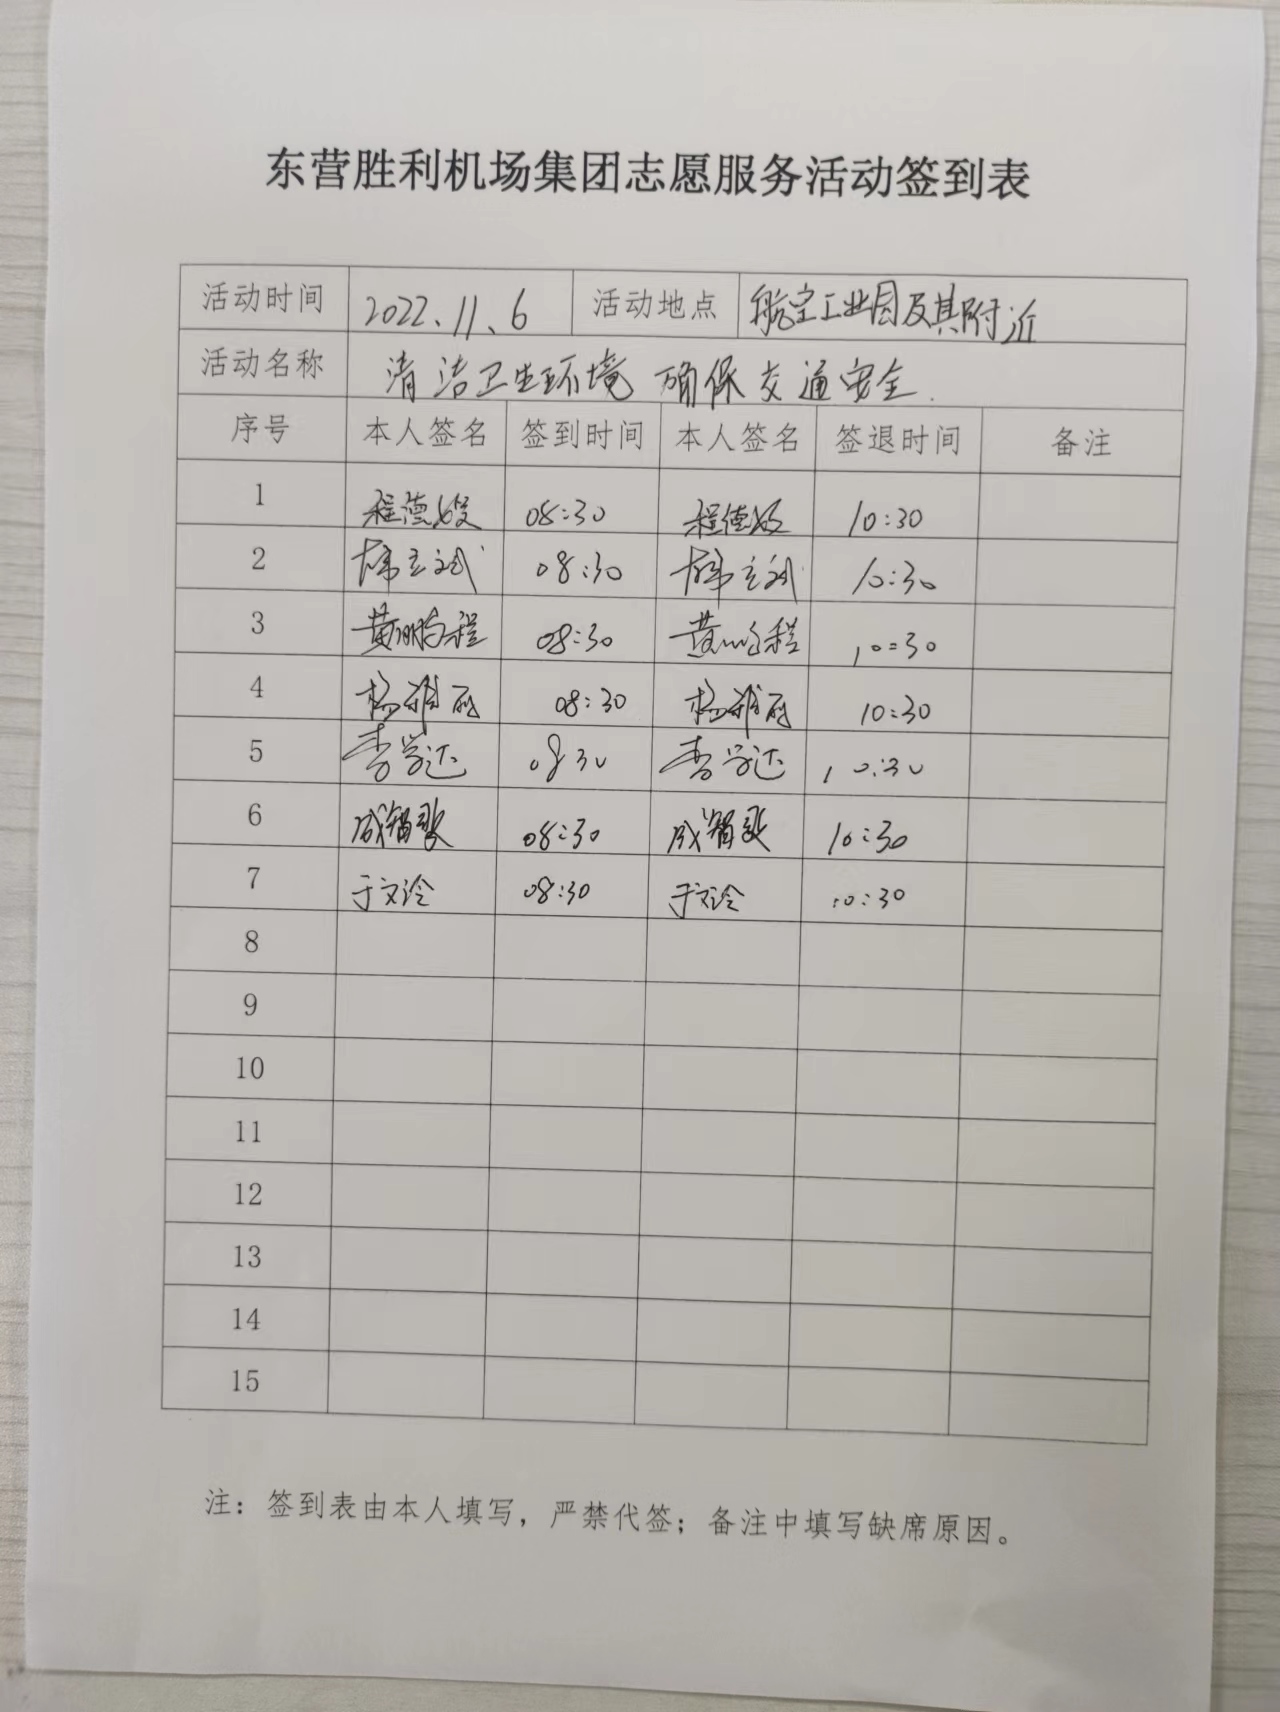 东营胜利机场集团志愿服务活动签到表
活动时间 2022.11.6 活动地点 航空工业园及其附近
活动名称 清洁卫生环境 确保交通安全.
序号 本人签名 签到时间 本人签名 签退时间 备注
1 程德姣 08:30 程德姣 10:30
2 08:30 10:30
3 黄鹏程 08:30 黄鹏程 10:30
4 杨雅丽 08:30 杨雅丽 10:30
5 李学达 08 30 李学达 10:30
6 成智歌 08:30 成智歌 10:30
7 于文泠 08:30 于文泠 10:30
8
9
10
11
12
13
14
15
注：签到表由本人填写，严禁代签；备注中填写缺席原因。